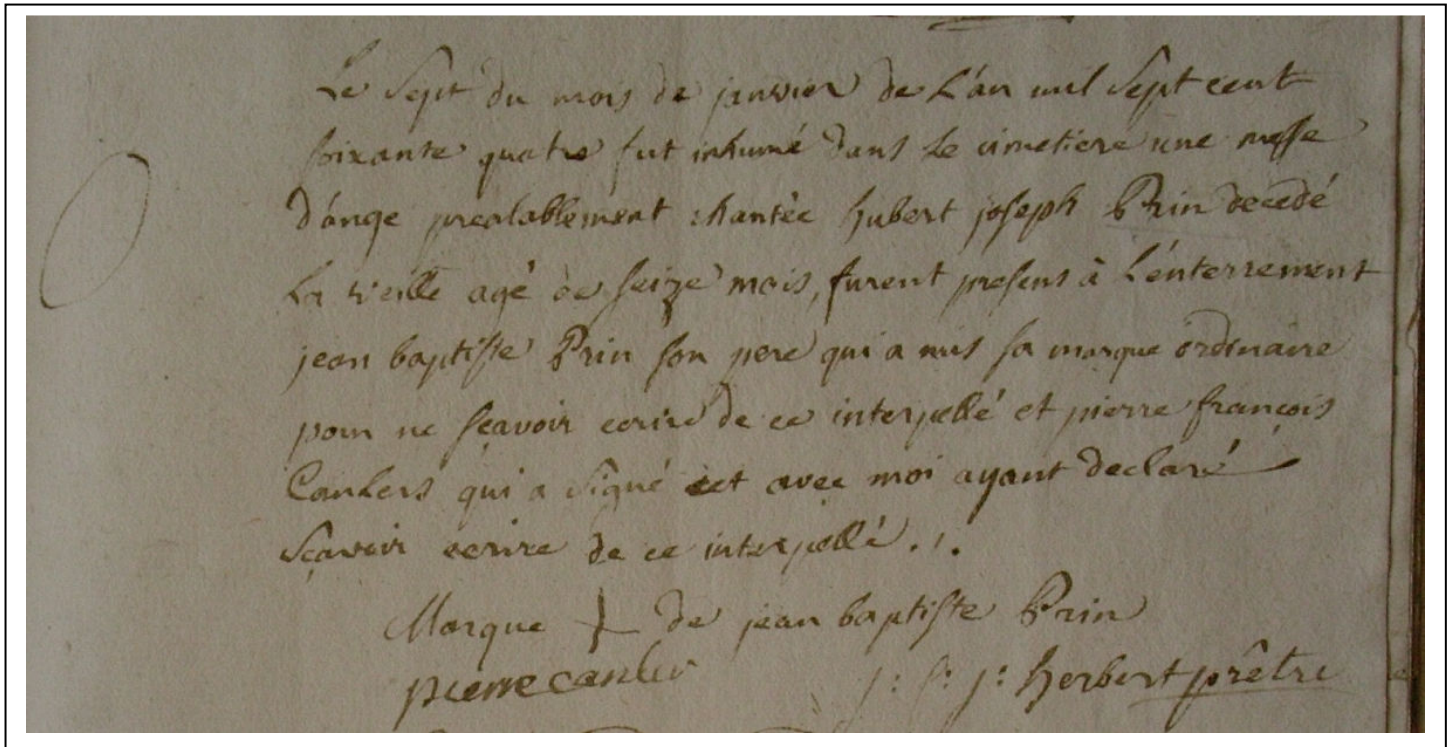 Le sept du mois de janvier de L'an mil sept cent
soixante quatre fut inhumé dans Le cimetiere une messe
d'ange prealablement chantée hubert joseph Prin decedé
La veille agé de seize mois, furent presens à L'enterrement
jean baptiste Prin son pere qui a mis sa marque ordinaire
pour ne sçavoir ecrire de ce interpellé et pierre françois
Canlers qui a signé et avec moi ayant declaré
sçavoir ecrire de ce interpellé . / .
Marque de jean baptiste Prin
pierre canler j: f: j: herbert prêtre